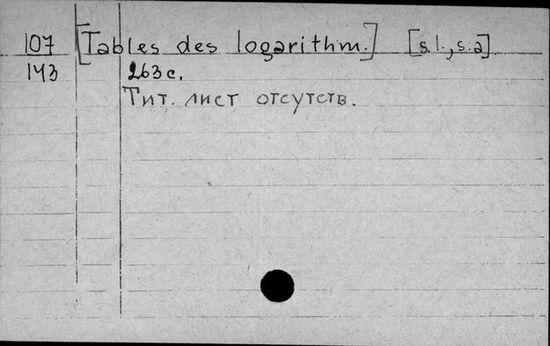 107 [Tables des logarithm.] [s.l., s.a]
143 263 с.
Тит. лист отсутств.